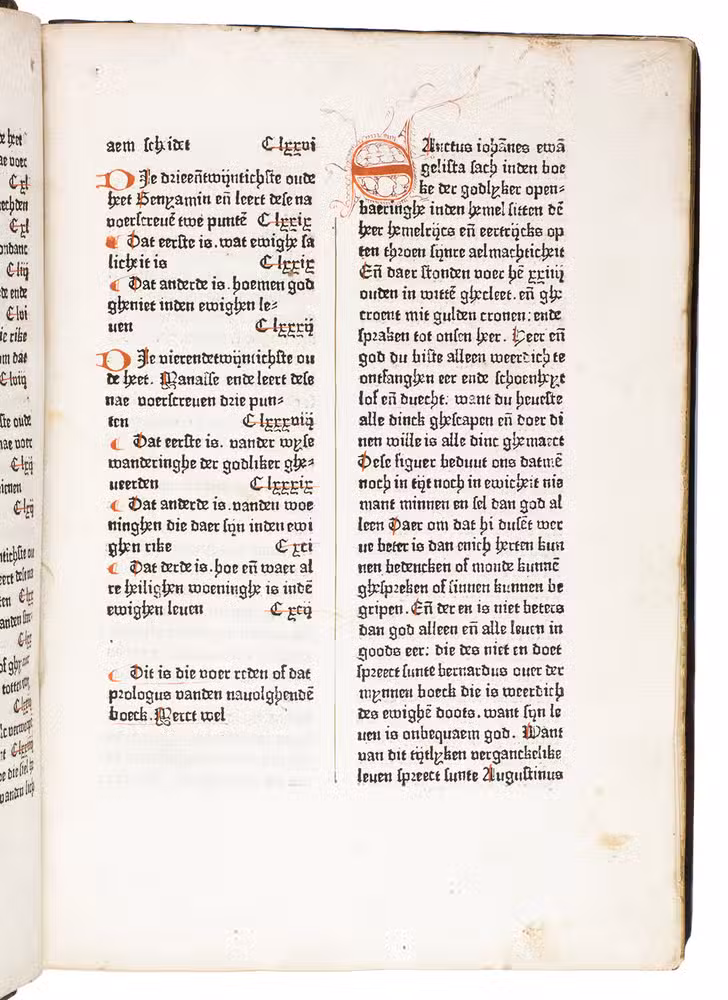 aem scheidet C lxxvi
DIe drieentwijntichste oude
heet Benyamin eñ leert dese na
voerscreuē twe puntē C lxxix
Dat eerste is. wat ewighe sa
licheit is C lxxix
Dat anderde is. hoemen god
gheniet inden ewighen le⸗
uen C lxxxij
DIe vierendetwijntichste ou
de heet. Manasse ende leert dese
nae voerscreuen drie pun⸗
ten C lxxxviij
Dat eerste is. vander wyse
wanderinghe der godliker ghe⸗
ueerden C lxxxix
Dat anderde is. vanden woe
ninghen die daer sijn inden ewi
ghen rike C xci
Dat derde is. hoe eñ waer al
re heilighen woeninghe is indē
ewighen leuen C xcij
Dit is die voer reden of dat
prologus vanden nauolghendē
boeck. Merct wel
SAnctus iohānes ewā
gelista sach inden boe
ke der godlyker open⸗
baeringhe inden hemel sitten dē
heer hemelrijcs eñ eertrijcks op
ten throen sijnre aelmachticheit
Eñ daer stonden voer hē xxiiij
ouden in wittē ghecleet. eñ ghe
croent mit gulden cronen: ende
spraken tot onsen heer. Heer eñ
god du biste alleen weerdich te
ontfanghen eer ende schoenheyt
lof eñ duecht: want du heueste
alle dinck ghescapen eñ doer di
nen wille is alle dinc ghemaect
Dese figuer beduut ons datmē
noch in tijt noch in ewicheit nie
mant minnen en sel dan god al
leen Daer om dat hi dusēt wer
ue beter is dan enich herten kun
nen bedencken of monde kunnē
ghespreken of sinnen kunnen be
gripen. Eñ der en is niet beters
dan god alleen eñ alle leuen in
goods eer: die des niet en doet
spreect sunte bernardus ouer der
mynnen boeck die is weerdich
des ewighē doots. want sijn le
uen is onbequaem god. Want
van dit tijtlyken verganckelike
leuen spreect sunte Augustinus